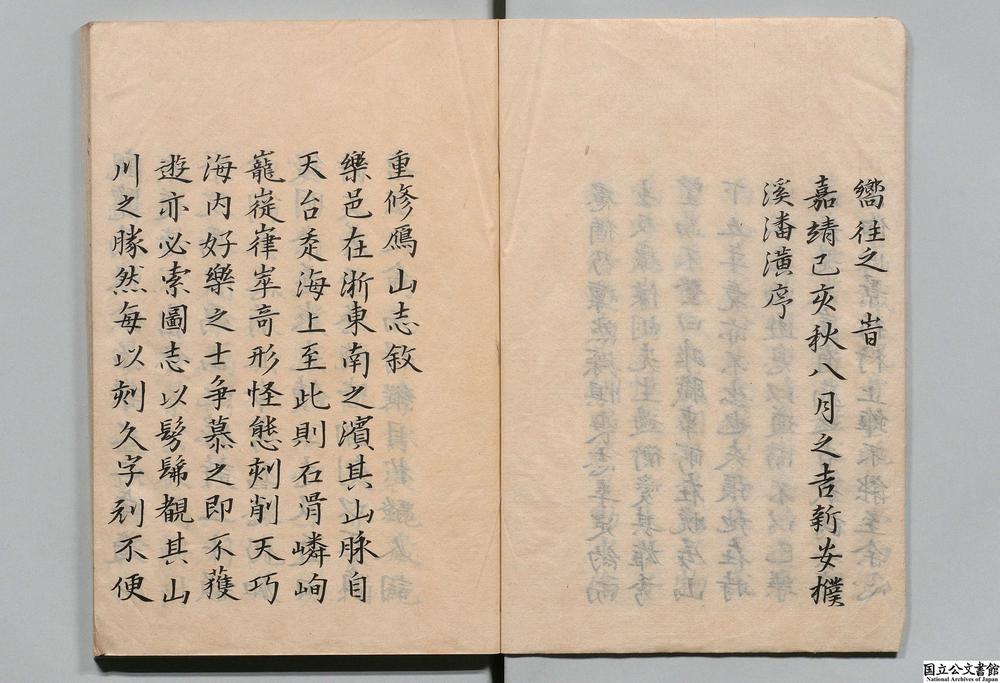 嚮往之旹
嘉靖己亥秋八月之吉新安樸
溪潘潢序
重修鴈山志敘
樂邑在浙東南之濱其山脉自
天台走海上至此則石骨嶙峋
巃嵸嵂崒奇形怪態刻削天巧
海内好樂之士爭慕之即不獲
遊亦必索圖志以髣髴覩其山
川之勝然每以刻久字刓不便
国立公文書館
National Archives of Japan